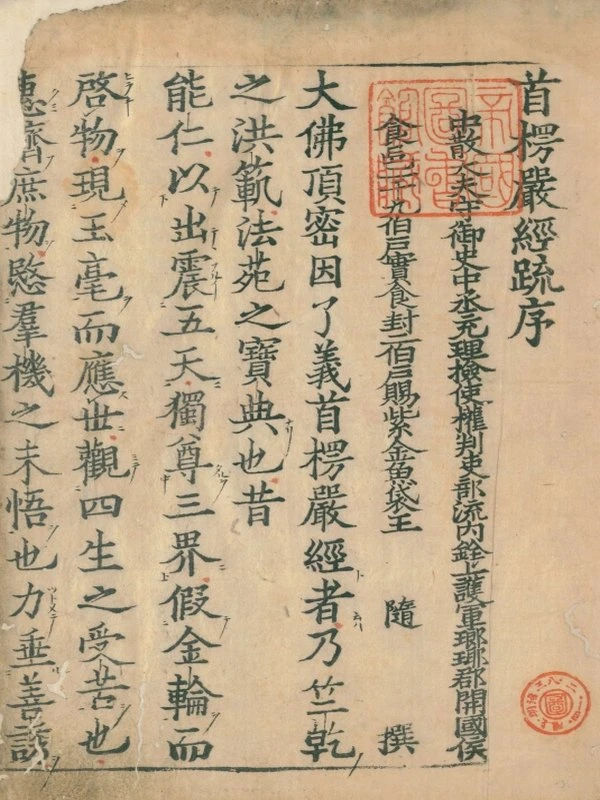 首楞嚴經䟽序
中散大夫守御史中丞充理撿使權判吏部流内銓上護軍瑯瑘郡開國侯
食邑一千九伯戶實食封二伯戶賜紫金魚袋王 隨 撰
大佛頂密因了義首楞嚴經者乃竺乾
之洪範法苑之寶典也昔
能仁以出震五天獨尊三界假金輪而
啓物現玉毫而應世觀四生之受苦也
惠濟庶物愍羣機之未悟也力垂善誘
帝國圖書館藏